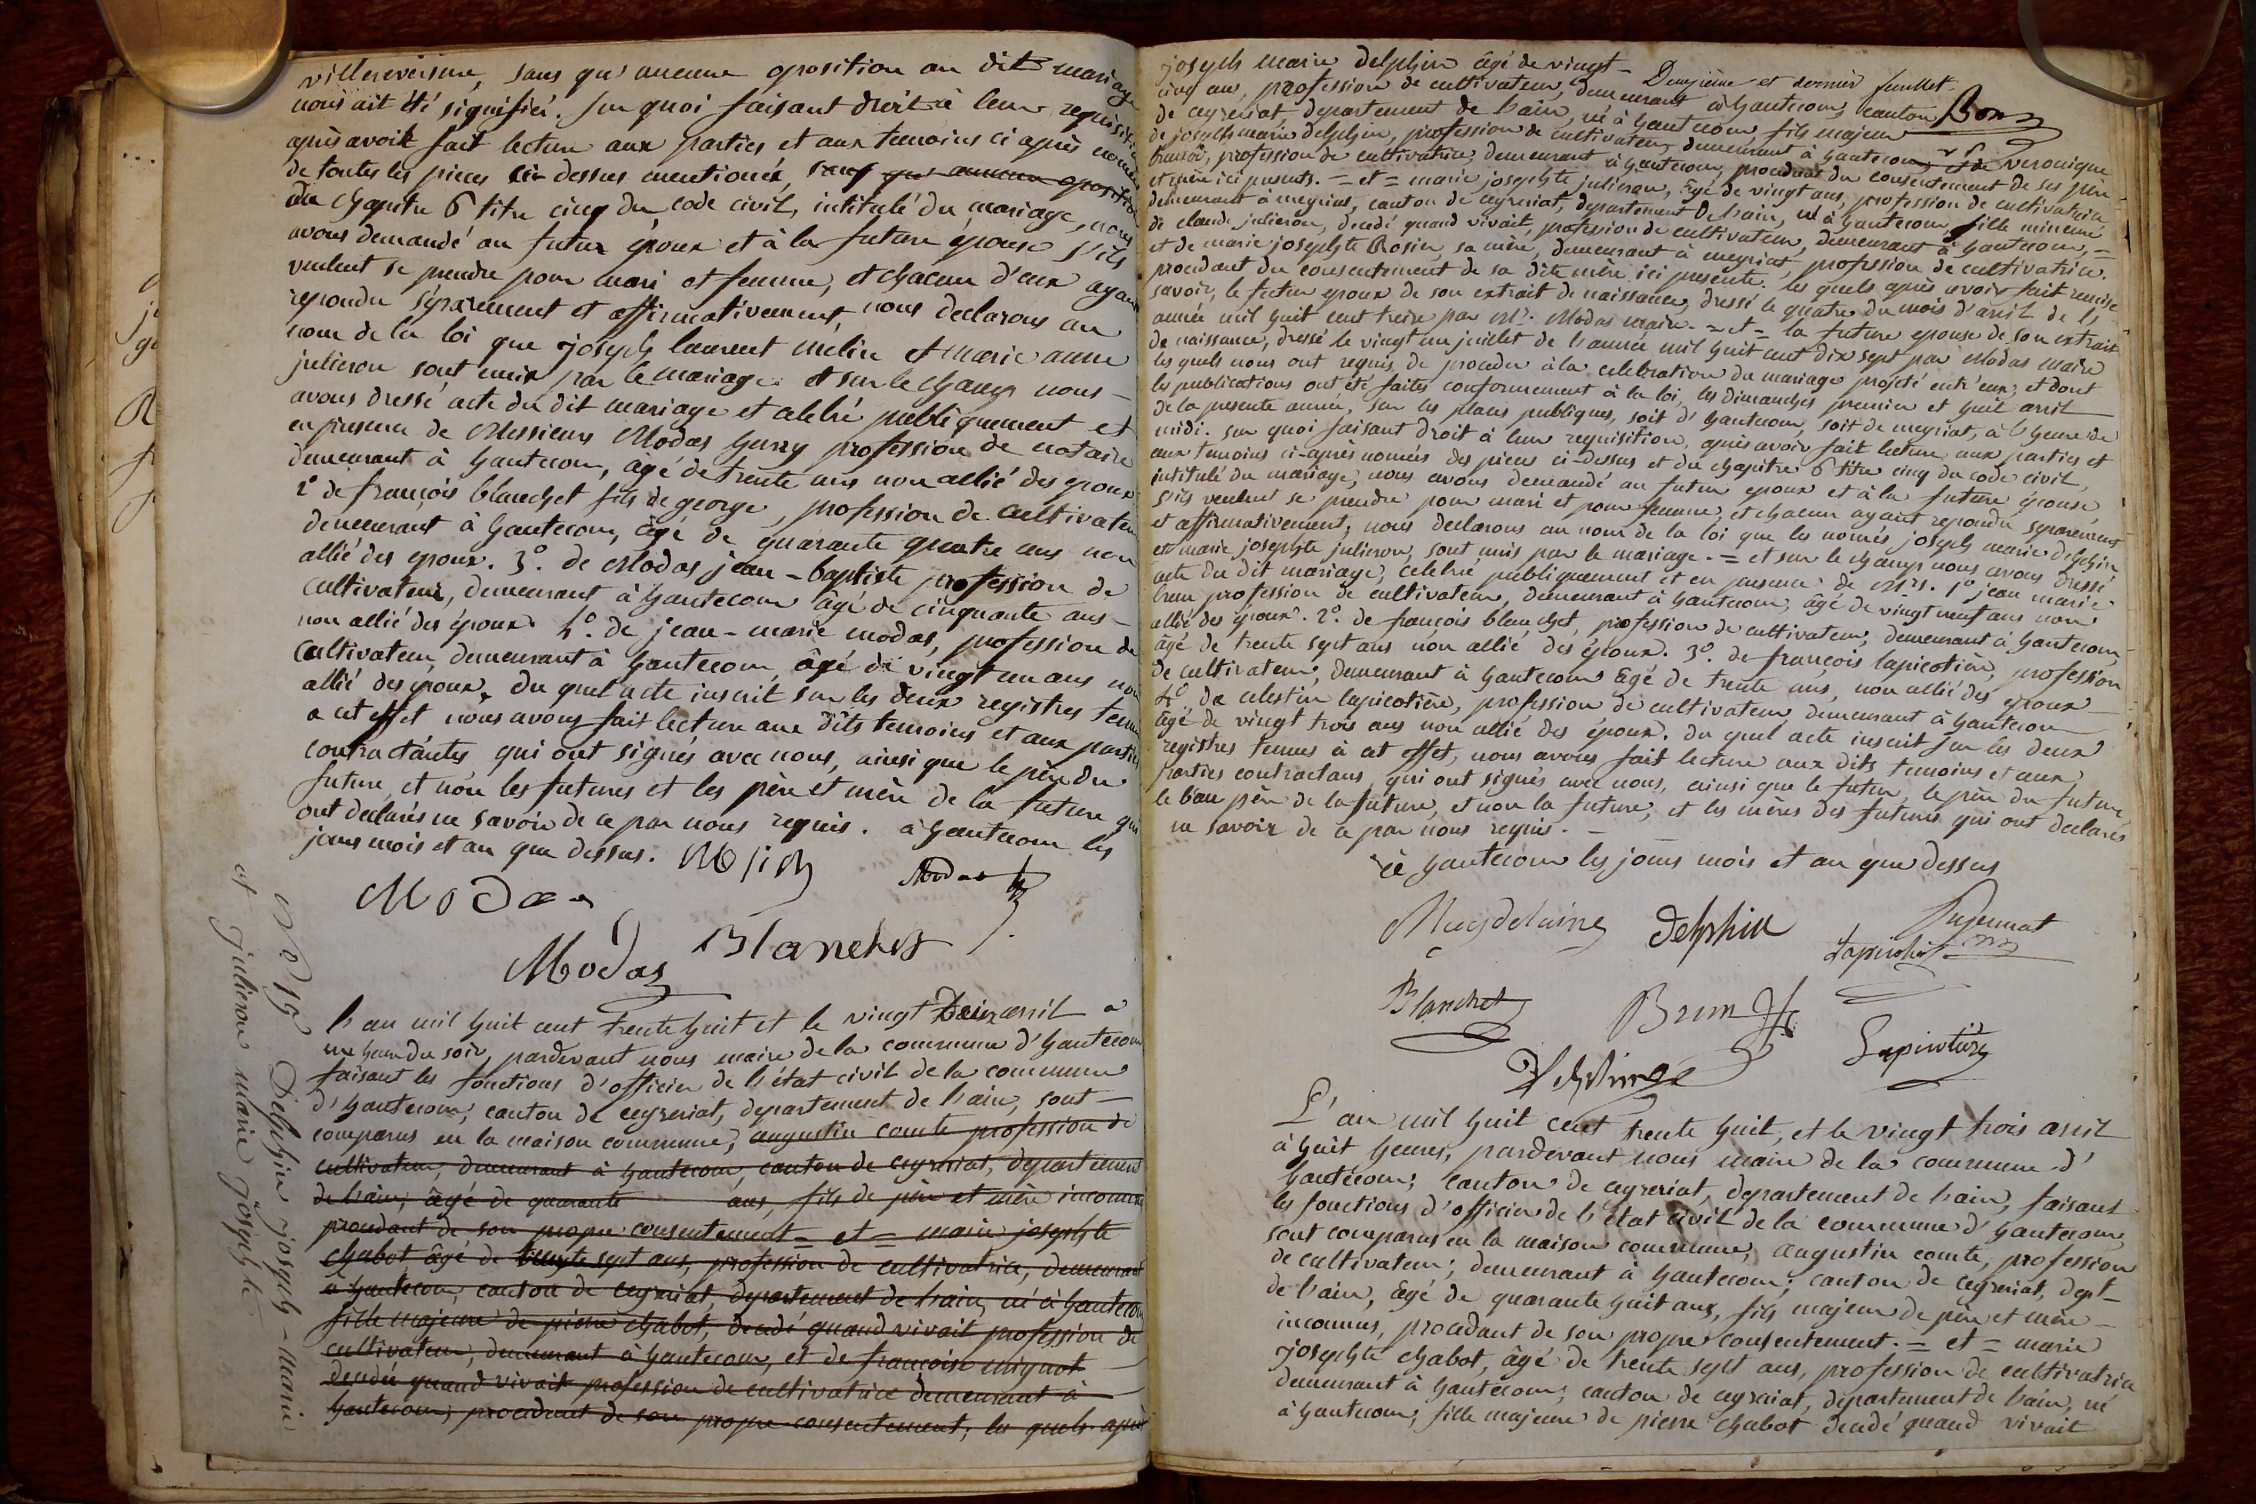 villereversure, sans qu'aucune oposition au dit mariage
nous ait été signifiée. sur quoi faisant droit à leur requisition
après avoir fait lecture aux parties et aux temoins ci après només
de toutes les pieces ci dessus mentionés, sauf qu' aucune oposition
du chapitre 6 titre cinq du code civil, intitulé du mariage, nous
avons demandé au futur époux et à la future épouse s'ils
veulent se prendre pour mari et femme, et chacun d'eux ayant
repondu séparement et affirmativement, nous declarons au
nom de la loi que joseph laurent melin et marie anne
julieron sont unis par le mariage. et sur le champ nous
avons dressé acte du dit mariage et celebré publiquement et
en presence de Messieurs Modas henry profession de notaire
demeurant à hautecour, âgé de trente ans non allié des epoux
2º de françois blanchet fils de george, profession de cultivateur
demeurant à hautecour, âgé de quarante quatre ans non
allié des epoux. 3º. de Modas jean-baptiste profession de
cultivateur, demeurant à hautecour âgé de cinquante ans
non allié des époux 4º. de jean-marie modas, profession de
cultivateur, demeurant à hautecour, âgé de vingt un ans non
allié des epoux. du quel acte inscrit sur les deux registres tenus
a cet effet nous avons fait lecture aux dits temoins et aux parties
contractantes qui ont signés avec nous, ainsi que le père du
future, et non les futures et les père et mère de la future qui
ont declarés ne savoir de ce par nous requis. à hautecour les
jours mois et an que dessus.
Modas
Modas
Modas Blanchet
Nº 15 Delphin joseph-marie
et julieron marie josephte
l'an mil huit cent trente huit et le vingt deux avril a
une heure du soir, pardevant nous maire de la commune d'hautecour
faisant les fonctions d'officier de l'état civil de la commune
d'hautecour, canton de ceyzeriat, departement de l'ain, sont
comparus en la maison commune, augustin comte profession de
cultivateur, demeurant à hautecour, canton de ceyzeriat, departement
de l'ain, âgé de quarante ans, fils de père et mère inconnus
procedant de son propre consentement = et = marie josephte
chabot âgé de trente sept ans, profession de cultivatrice, demeurant
à hautecour, canton de ceyzeriat, departement de l'ain, né à hautecour
fille majeure de pierre chabot, decedé quand vivait profession de
cultivateur, demeurant à hautecour, et de françoise mignot
decedée quand vivait profession de cultivatrice demeurant à
hautecour, procedant de son propre consentement, les quels après
joseph marie delphin âgé de vingt
Deuxième et dernier feuillet
cinq ans, profession de cultivateur, demeurant à hautecour, canton
de ceyzeriat, departement de l'ain, né à hautecour, fils majeur
de joseph marie delphin, profession de cultivateur demeurant à hautecour, et de veronique
profession de cultivatrice, demeurant à hautecour, procedant du consentement de ses père
et mère ici presents. = et = marie josephte julieron, âgé de vingt ans, profession de cultivatrice
demeurant à meyriat, canton de ceyzeriat, departement de l'ain, né à hautecour, fille mineure
de claude julieron, decedé quand vivait, profession de cultivateur, demeurant à hautecour, =
et de marie josephte Rosier, sa mère, demeurant à meyriat, profession de cultivatrice.
procedant du consentement de sa dite mère ici presente. les quels après avoir fait remise
savoir, le futur epoux de son extrait de naissance, dressé le quatre du mois d'avril de l'
année mil huit cent treize par Mr. Modas maire. = et = la future epouse de son extrait
de naissance, dressé le vingt un juillet de l'année mil huit cent dix sept par Modas maire
les quels nous ont requis de proceder à la celebration du mariage projeté entr'eux; et dont
les publications ont été faites conformement à la loi, les dimanches premier et huit avril
de la presente année, sur les places publiques, soit d'hautecour, soit de meyriat, à l'heure de
midi. sur quoi faisant droit à leur requisition, après avoir fait lecture aux parties et
aux temoins ci-après només des pieces ci-dessus et du chapitre 6 titre cinq du code civil,
intitulé du mariage, nous avons demandé au futur epoux et à la future épouse
s'ils veulent se prendre pour mari et pour femme, et chacun ayant repondu separement
et affirmativement, nous declarons au nom de la loi que les només joseph marie delphin
et marie josephte julieron, sont unis par le mariage. = et sur le champ nous avons dressé
acte du dit mariage, celebré publiquement et en presence de Mrs. 1º jean marie
brun profession de cultivateur, demeurant à hautecour, âgé de vingt neuf ans non
allié des époux. 2º. de françois blanchet, profession de cultivateur, demeurant à hautecour,
âgé de trente sept ans non allié des époux. 3º. de françois lapicotière, profession
de cultivateur, demeurant à hautecour âgé de trente ans, non allié des epoux
4º de celestin lapicotière, profession de cultivateur demeurant à hautecour
âgé de vingt trois ans non allié des époux. du quel acte inscrit sur les deux
registres tenus à cet effet, nous avons fait lecture aux dits temoins et aux
parties contractans, qui ont signés avec nous, ainsi que le futur, le père du futur,
le beau père de la future, et non la future, et les mères des futurs qui ont declarés
ne savoir de ce par nous requis.
à hautecour les jours mois et an que dessus
Magdelaine delphin
Blanchet Brun Lapicotière
L'an mil huit cent trente huit, et le vingt trois avril
à huit heures, pardevant nous maire de la commune d'
hautecour, canton de ceyzeriat, departement de l'ain, faisant
les fonctions d'officier de l'état civil de la commune d'hautecour,
sont comparus en la maison commune, augustin comte, profession
de cultivateur; demeurant à hautecour; canton de ceyzeriat, dept
de l'ain, âgé de quarante huit ans, fils majeur de père et mère
inconnus, procedant de son propre consentement. = et = marie
josephte chabot, âgé de trente sept ans, profession de cultivatrice
demeurant à hautecour; canton de ceyzeriat, departement de l'ain, né
à hautecour, fille majeure de pierre chabot decedé quand vivait